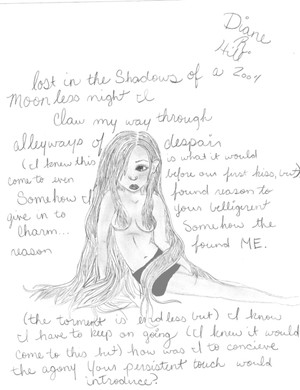 Diane
Hiff
2004
lost in the Shadows of a
Moonless night I
Claw my way through
alleyways of despair
(I knew this is what it would
come to even before our first kiss, but)
Somehow I found reason to
give in to your belligerent
Charm... Somehow the
reason found ME.
(the torment is endless but) I know
I have to keep on going (I knew it would
come to this but) how was I to concieve
the agony your persistent touch would
introduce?